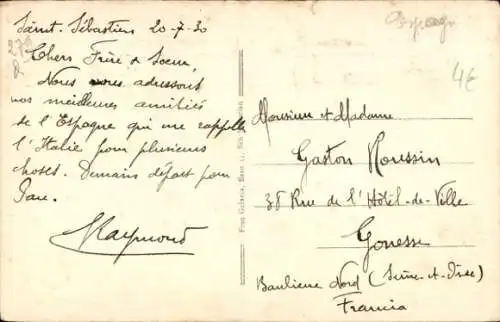 Saint-Sébastien 20-7-30
Chers Frère & Soeur,
Nous vous adressons
nos meilleures amitiés
de l'Espagne qui me rappelle
l'Italie pour plusieurs
choses. Demain départ pour
Pau.
Raymond
Espagne
4€
Monsieur et Madame
Gaston Roussin
38 Rue de l'Hôtel-de-Ville
Gonesse
Banlieue Nord (Seine-et-Oise)
Francia